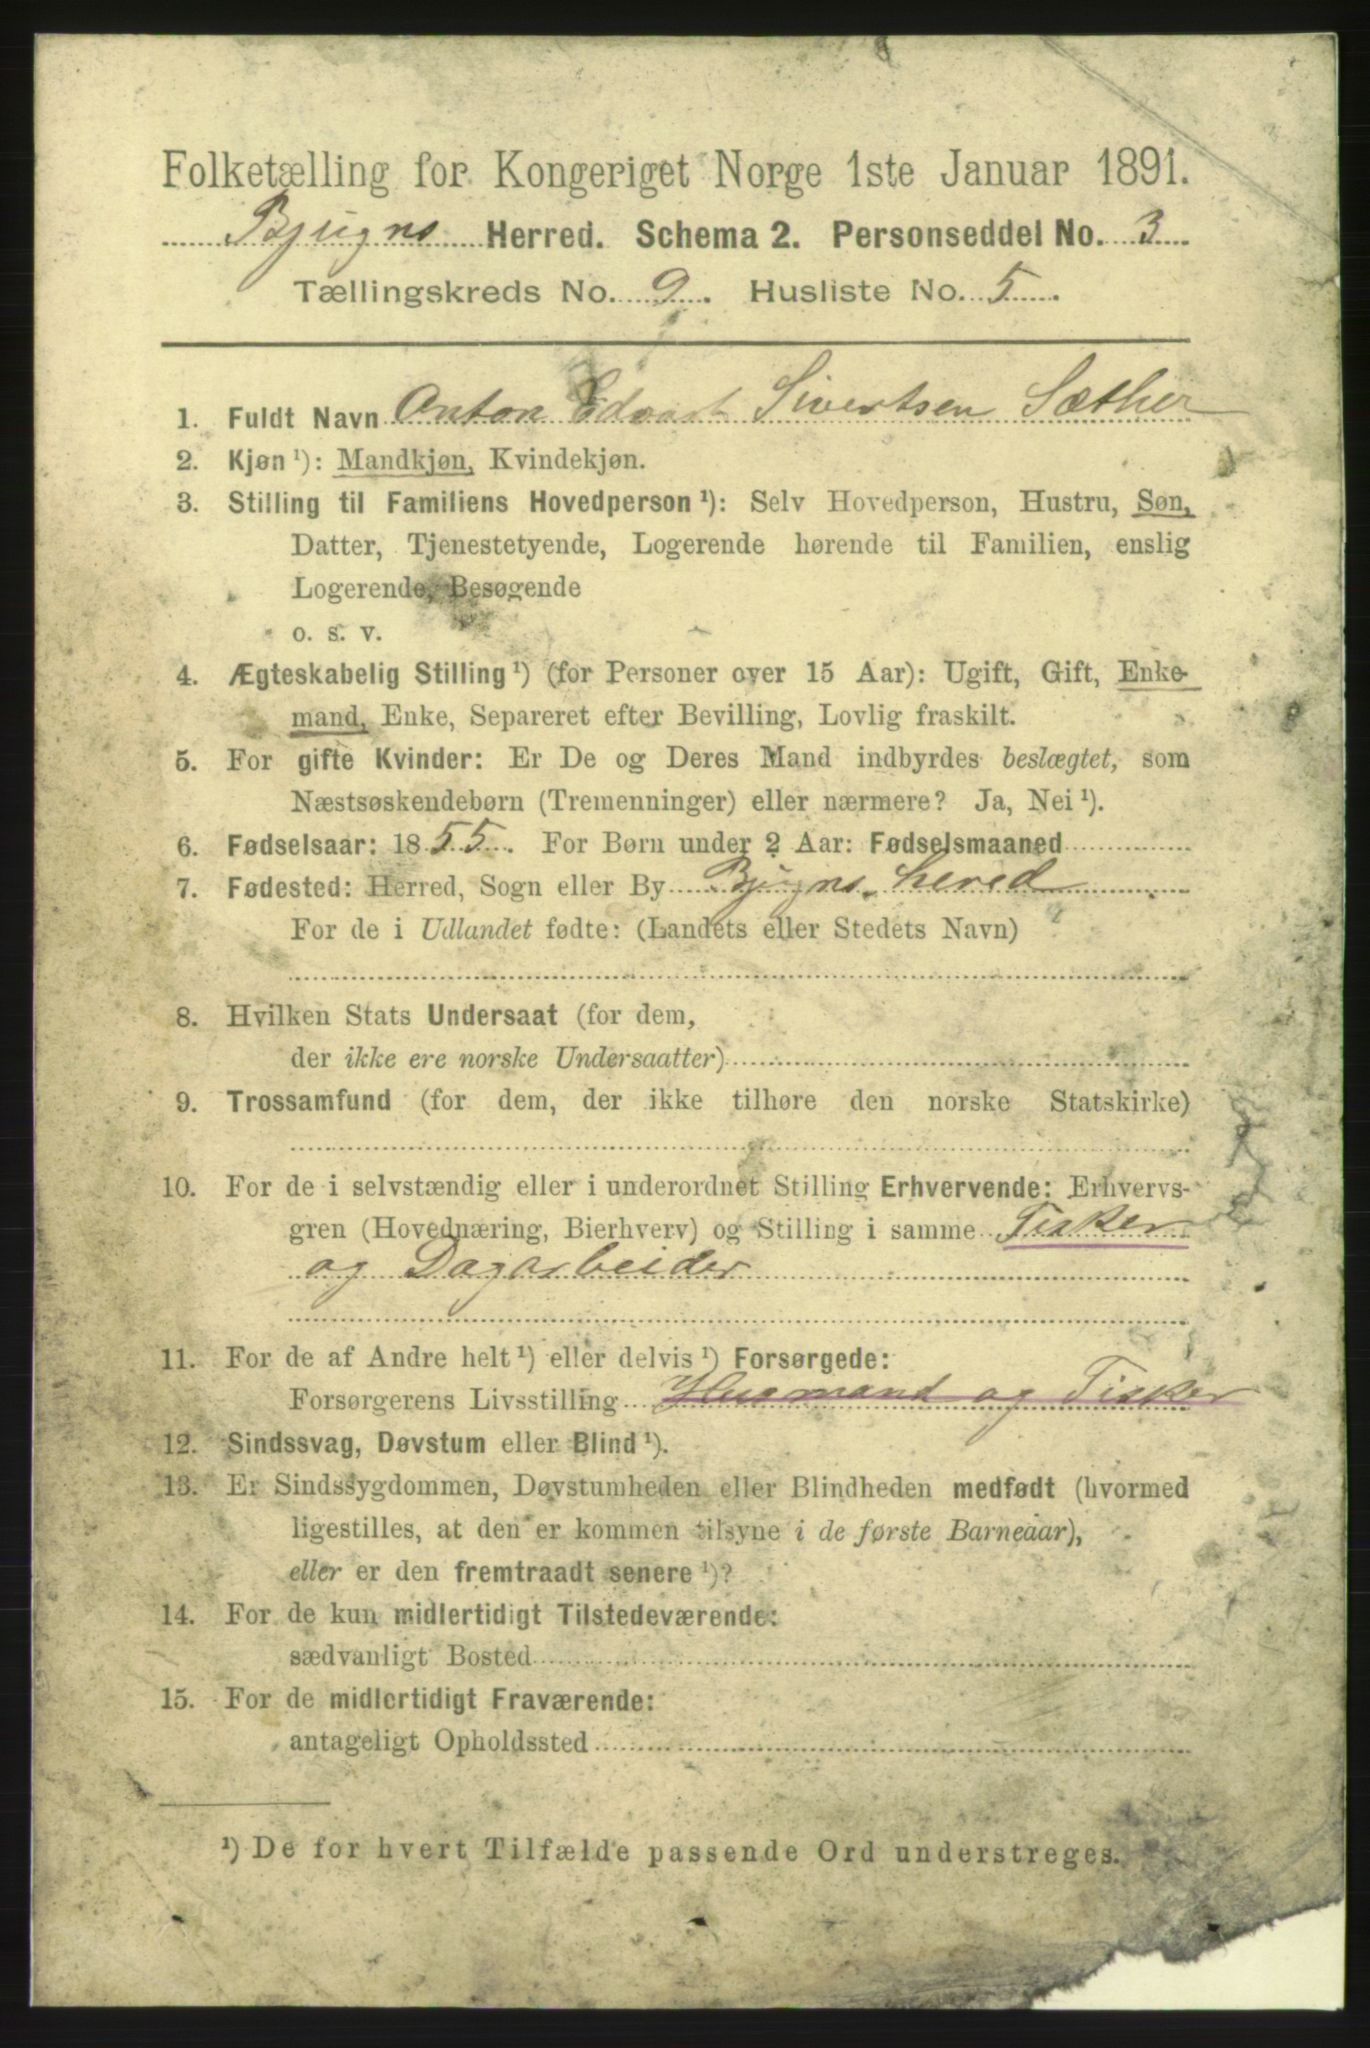 Folketælling for Kongeriget Norge 1ste Januar 1891.
Bjugns Herred. Schema 2. Personseddel No. 3
Tællingskreds No. 9. Husliste No. 5
1. Fuldt Navn Anton Edvart Sivertsen Sæther
2. Kjøn ¹): Mandkjøn, Kvindekjøn.
3. Stilling til Familiens Hovedperson ¹): Selv Hovedperson, Hustru, Søn,
Datter, Tjenestetyende, Logerende hørende til Familien, enslig
Logerende, Besøgende
o. s. v.
4. Ægteskabelig Stilling ¹) (for Personer over 15 Aar): Ugift, Gift, Enke-
mand, Enke, Separeret efter Bevilling, Lovlig fraskilt.
5. For gifte Kvinder: Er De og Deres Mand indbyrdes beslægtet, som
Næstsøskendebørn (Tremenninger) eller nærmere? Ja, Nei ¹).
6. Fødselsaar: 1855. For Børn under 2 Aar: Fødselsmaaned
7. Fødested: Herred, Sogn eller By Bjugns herred
For de i Udlandet fødte: (Landets eller Stedets Navn)
8. Hvilken Stats Undersaat (for dem,
der ikke ere norske Undersaatter)
9. Trossamfund (for dem, der ikke tilhøre den norske Statskirke)
10. For de i selvstændig eller i underordnet Stilling Erhvervende: Erhvervs-
gren (Hovednæring, Bierhverv) og Stilling i samme Fisker
og Dagarbeider
11. For de af Andre helt ¹) eller delvis ¹) Forsørgede:
Forsørgerens Livsstilling Husmand og Fisker
12. Sindssvag, Døvstum eller Blind ¹).
13. Er Sindssygdommen, Døvstumheden eller Blindheden medfødt (hvormed
ligestilles, at den er kommen tilsyne i de første Barneaar),
eller er den fremtraadt senere ¹)?
14. For de kun midlertidigt Tilstedeværende:
sædvanligt Bosted
15. For de midlertidigt Fraværende:
antageligt Opholdssted
¹) De for hvert Tilfælde passende Ord understreges.